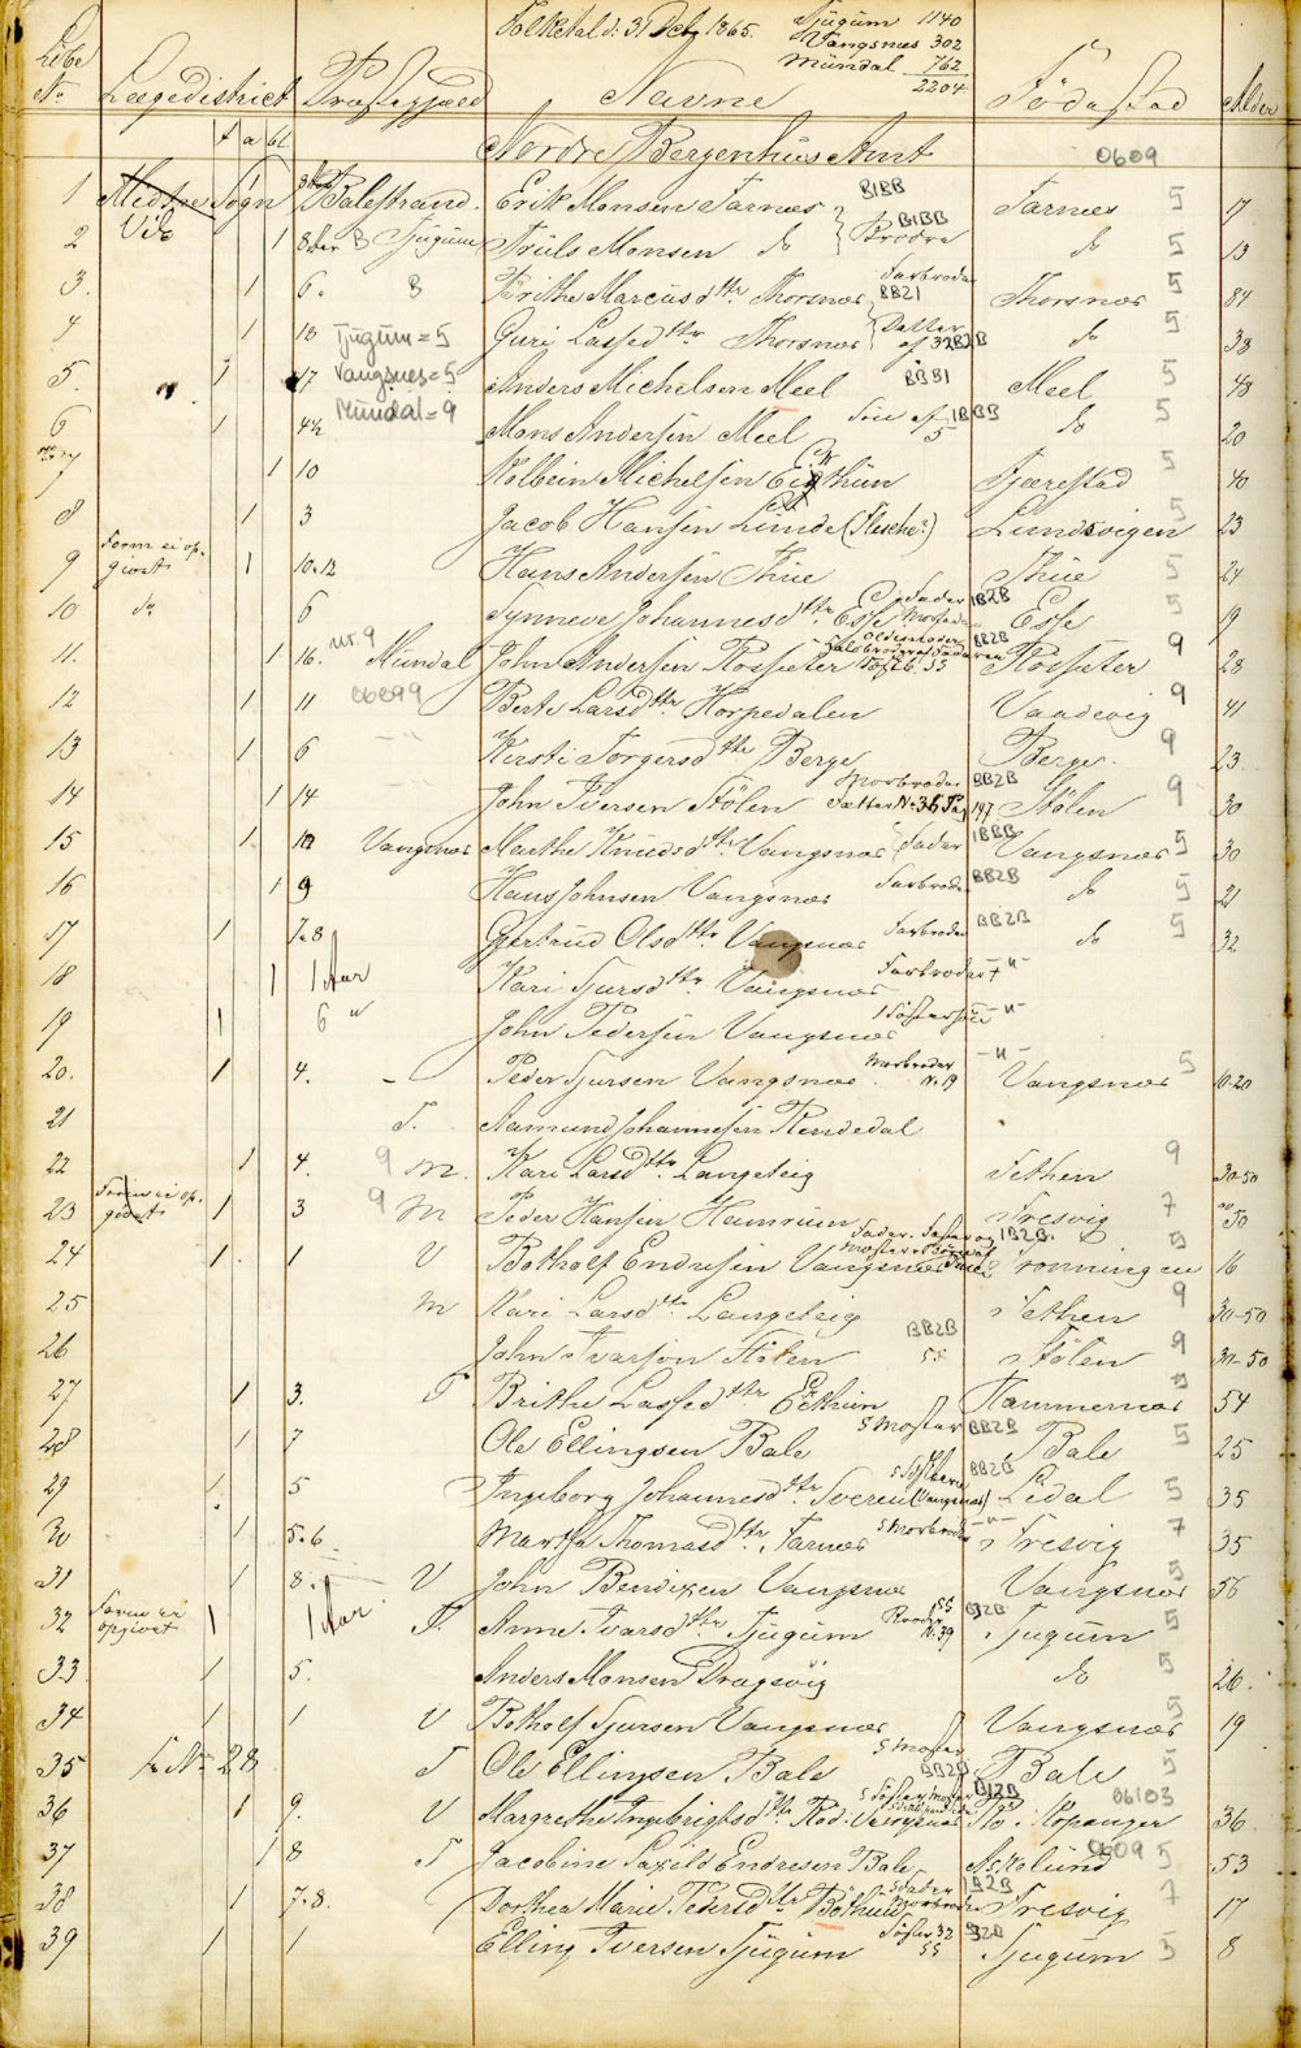 Folketal d. 31 Dcbr 1865. Tjugum 1140
Vangsnes 302
Mundal 762
2204
Løbe No Lægedistrict Præstegjæld Navne Fødested Alder
t a bl
Nordre Bergenhus Amt 0609
1 Sogn Balestrand. Erik Monsen Farnes B1BB Farnes 5 17
2 Vik 1 8 B Tjugum Truls Monsen do Brødre B1BB do 5 13
3. 1 6. B Brithe Marcusdttr. Thorsnes Farbroder BB21 Thorsnes 5 84
4 1 18 Tjugum = 5 Guri Lassedttr Thorsnes Datter af 3 2B2B do 5 38
5. 1 17 Vangsnes = 5 Anders Michelsen Meel BBB1 Meel 5 48
6 1 4½ Mundal = 9 Mons Andersen Meel Søn af 5 1BBB do 5 20
7 1 10 Kolbein Michelsen Fjærestad 5 40
8 1 3 Jacob Hansen Lunde Lundsvigen 5 23
9 Form ei op. givet 1 10.12 Hans Andersen Thue Thue 5 24
10 do 6 Synneve Johannesdttr. Esse Fader 1B2B Esse 5 19
11. 1 16. nr. 9 Mundal John Andersen Rossæter BB2B Rossæter 9 28
12 1 11 06099 Berte Larsdttr. Horpedalen Vaadevig 9 41
13 1 6 Kirsti Torgersdttr Berge Berge. 9 23
14 1 14 John Iversen Stølen Morbroder BB2B Fætter No 36 Pag 197 Stølen 9 30
15 1 10 Vangsnes Marthe Knudsdttr. Vangsnes Fader 1BBB Vangsnes 5 30
16 1 9 Hans Johnsen Vangsnes Farbroder BB2B do 5 21
17 1 7.8 Gjertrud Olsdttr. Vangsnes Farbroder BB2B do 5 32
18 1 1 Aar Kari Sjursdttr. Vangsnes Farbroder -"-
19 1 6 " John Pedersen Vangsnes 1 Søstersøn -"-
20. 1 4. - Peder Sjursen Vangsnes Morbroder N. 19 -"- Vangsnes 5 10-20
21 T. Aamund Johannesen Rendedal
22 1 4. 9 M. Kari Larsdttr. Langeteig Fethen 9 30-50
23 Form ei op. givet 1 3 9 M Peder Hansen Hamrum Fresvig 7 50
24 1 1 V Botholf Endresen Vangsnes 1B2B Trønningen 5 16
25 M Kari Larsdttr Langeteig Fethen 9 30-50
26 John Ivarson Stølen BB2B SS Stølen 9 30-50
27 1 3. T Brithe Lassedttr Eethun Hammernes 5 54
28 1 7 Ole Ellingsen Bale S Moster BB2B Bale 5 25
29 1 5 Ingeborg Johannesdttr. (Vangsnes) BB2B Lidal 5 35
30 1 5.6 Martha Thomasdttr. Farnes S Morbroder -"- Fresvig 7 35
31 1 8. V John Bendixen Vangsnes Vangsnes 5 56
32 Form ei opgivet 1 1 Aar T. Anne Ivarsdttr Tjugum SS Broder N. 39 B2B Tjugum 5
33 1 5. Anders Monsen Dragsvig do 5 26.
34 1 1 V Botholf Sjursen Vangsnes Vangsnes 5 19
35 No 28 T Ole Ellingsen Bale S Moster BB2B Bale 5
36 1 9. V Margrethe Ingebrigtsdttr Rød: Vangsnes S Søster Moster B12B Kopanger 06103 36
37 1 8 T Jacobine Endresen Bale Askelund 0609 5 53
38 1 7.8. Dorthea Marie Pedersdttr Bøthun S Fader Morbroder 1B2B Fresvig 7 17
39 1 1 Elling Iversen Tjugum Søster 32 SS B2B Tjugum 5 8